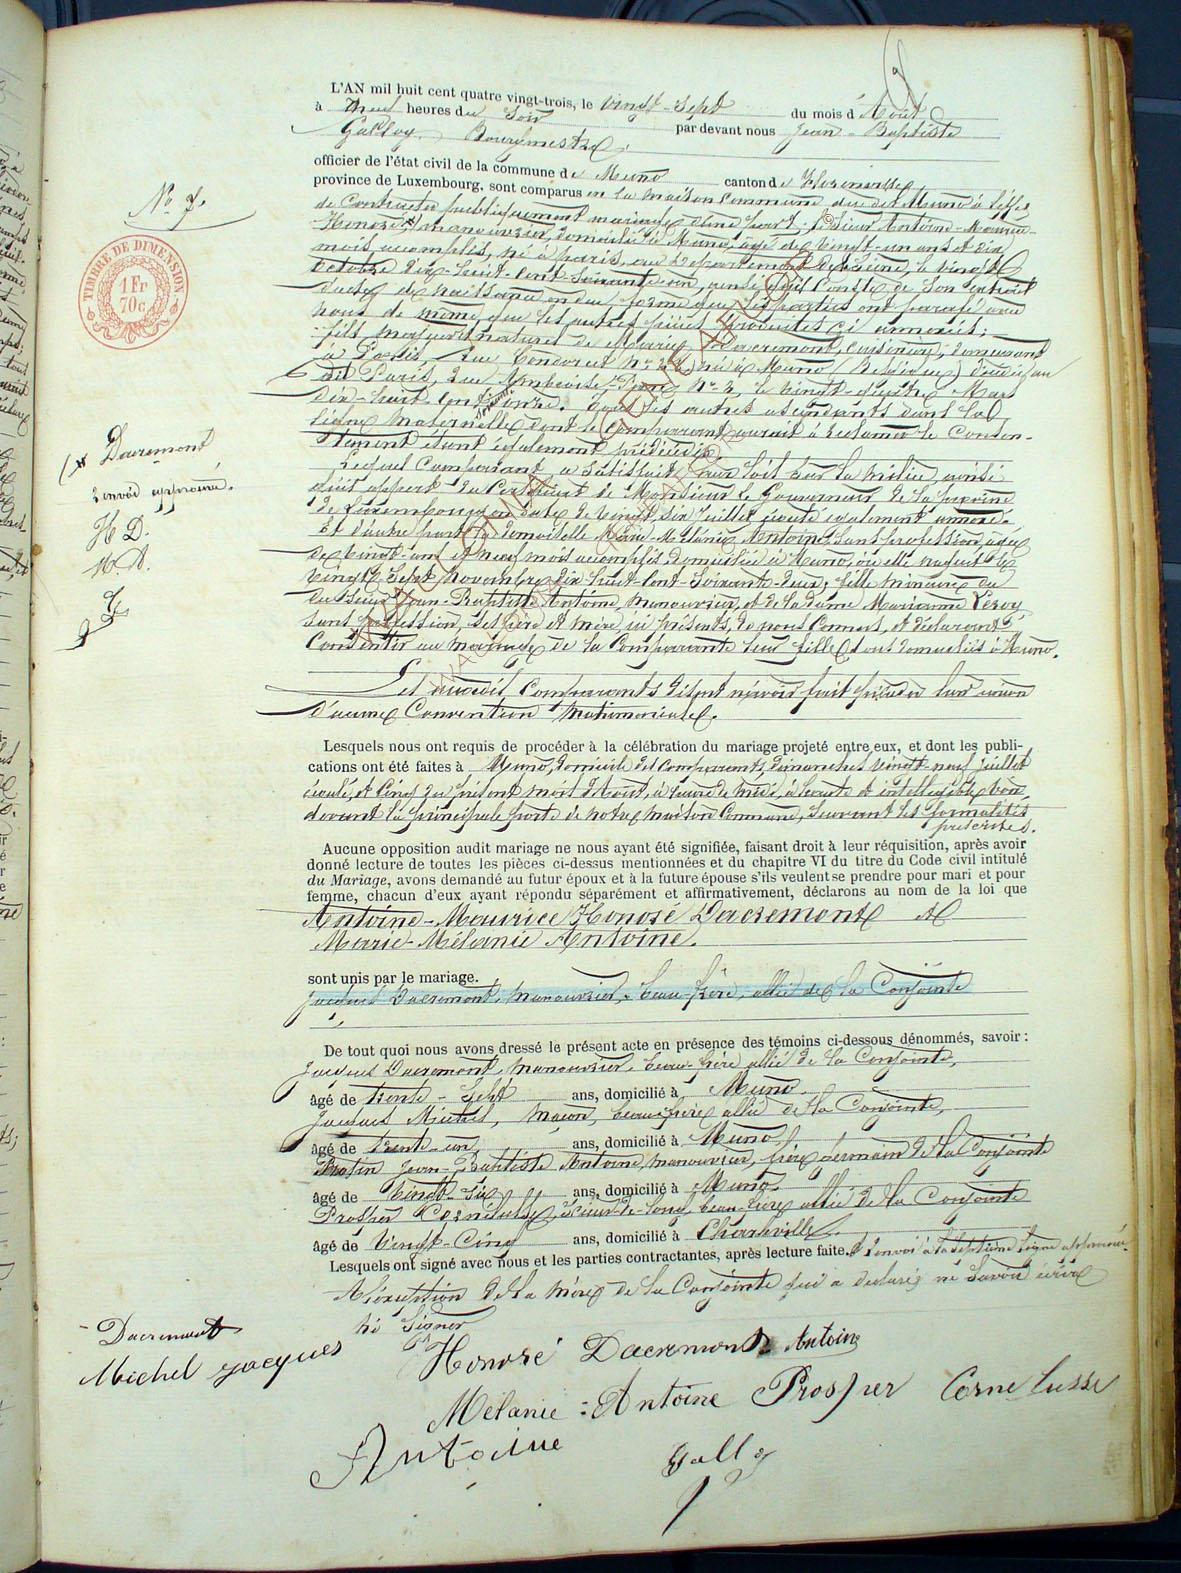 L'AN mil huit cent quatre vingt-trois, le vingt-sept du mois d'Août
à neuf heures du Soir par devant nous Jean-Baptiste
Galloy, Bourgmestre,
officier de l'état civil de la commune de Muno canton de Florenville,
province de Luxembourg, sont comparus en la maison Commune du dit Muno à l'effet
de Contracter publiquement mariage d'une part: le Sieur Antoine-Maurice-
Honoré manouvrier, domicilié à Muno, âgé de Vingt-un ans et dix
mois accomplis, né à Paris, au Département de la Seine, le vingt
octobre Dix-huit-Cent-Soixante-un, ainsi qu'il Conste de Son extrait
d'acte de naissance en due forme que les parties ont parafé avec
nous de même que les autres pièces produites ci annexées;
fils majeur naturel de Marie Dacremont, Cuisinière, demeurant
à Paris, Rue Condorcet No née à Muno (Belgique) décédée au
dit Paris, Rue Ambroise-Paré No 2, le vingt-quatre Mai
Dix-huit-Cent les autres ascendants dans la
ligne Maternelle dont le Comparant aurait à réclamer le Consen-
tement étant également prédécédés.
Lequel Comparant a Satisfait aux lois Sur la milice, ainsi
qu'il appert du Certificat de Monsieur le Gouverneur de la province
de Luxembourg en date du Vingt-six Juillet écoulé également annexé.
Et d'autre part la demoiselle Marie-Mélanie Antoine, Sans profession, âgée
de Vingt-ans et neuf mois accomplis, domiciliée à Muno, où elle naquit le
Vingt-Sept Novembre Dix-huit-Cent-Soixante-deux, fille mineure du
du Sieur Jean-Baptiste Antoine, Manouvrier, et de la Dame Marianne Leroy
Sans profession, Ses père et mère ici présents, de nous Connus, et déclarant
Consentir au mariage de la Comparante leur fille, tous domiciliés à Muno.
Les susdits Comparants disent n'avoir fait précéder leur union
d'aucune Convention Matrimoniale.
Lesquels nous ont requis de procéder à la célébration du mariage projeté entre eux, et dont les publi-
cations ont été faites à Muno, domicile des Comparants, dimanches Vingt-neuf juillet
écoulé, et Cinq du présent mois d'Août, à l'heure de Midi, à haute et intelligible Voix
devant la principale porte de notre Maison Commune, suivant les formalités
prescrites.
Aucune opposition audit mariage ne nous ayant été signifiée, faisant droit à leur réquisition, après avoir
donné lecture de toutes les pièces ci-dessus mentionnées et du chapitre VI du titre du Code civil intitulé
du Mariage, avons demandé au futur époux et à la future épouse s'ils veulent se prendre pour mari et pour
femme, chacun d'eux ayant répondu séparément et affirmativement, déclarons au nom de la loi que
Antoine-Maurice Honoré Dacremont et
Marie-Mélanie Antoine.
sont unis par le mariage.
Jacques Dacremont, Manouvrier, beau-frère, allié de la Conjointe
De tout quoi nous avons dressé le présent acte en présence des témoins ci-dessous dénommés, savoir:
Jacques Dacremont, Manouvrier, beau-frère allié de la Conjointe,
âgé de trente-Sept ans, domicilié à Muno.
Jacques Michel, Maçon, beau-frère allié de la Conjointe,
âgé de trente-un ans, domicilié à Muno
Jean-Baptiste Antoine, manouvrier, frère Germain de la Conjointe
âgé de Vingt-Six ans, domicilié à Muno.
Prosper Cornelusse, Scieur-de-long, beau-frère allié de la Conjointe
âgé de Vingt-Cinq ans, domicilié à Charleville.
Lesquels ont signé avec nous et les parties contractantes, après lecture faite. Renvoi à la Septième ligne approuvé.
A l'exception de la Mère de la Conjointe qui a déclaré ne Savoir écrire
ni Signer
No 7.
TIMBRE DE DIMENSION
1 Fr
70c
(x Dacremont
renvoi approuvé.
H D.
M. A.
G
Dacremont
Michel Jacques
Honoré Dacremont Antoine
Mélanie Antoine Prosper Cornelusse
Antoine
Galloy